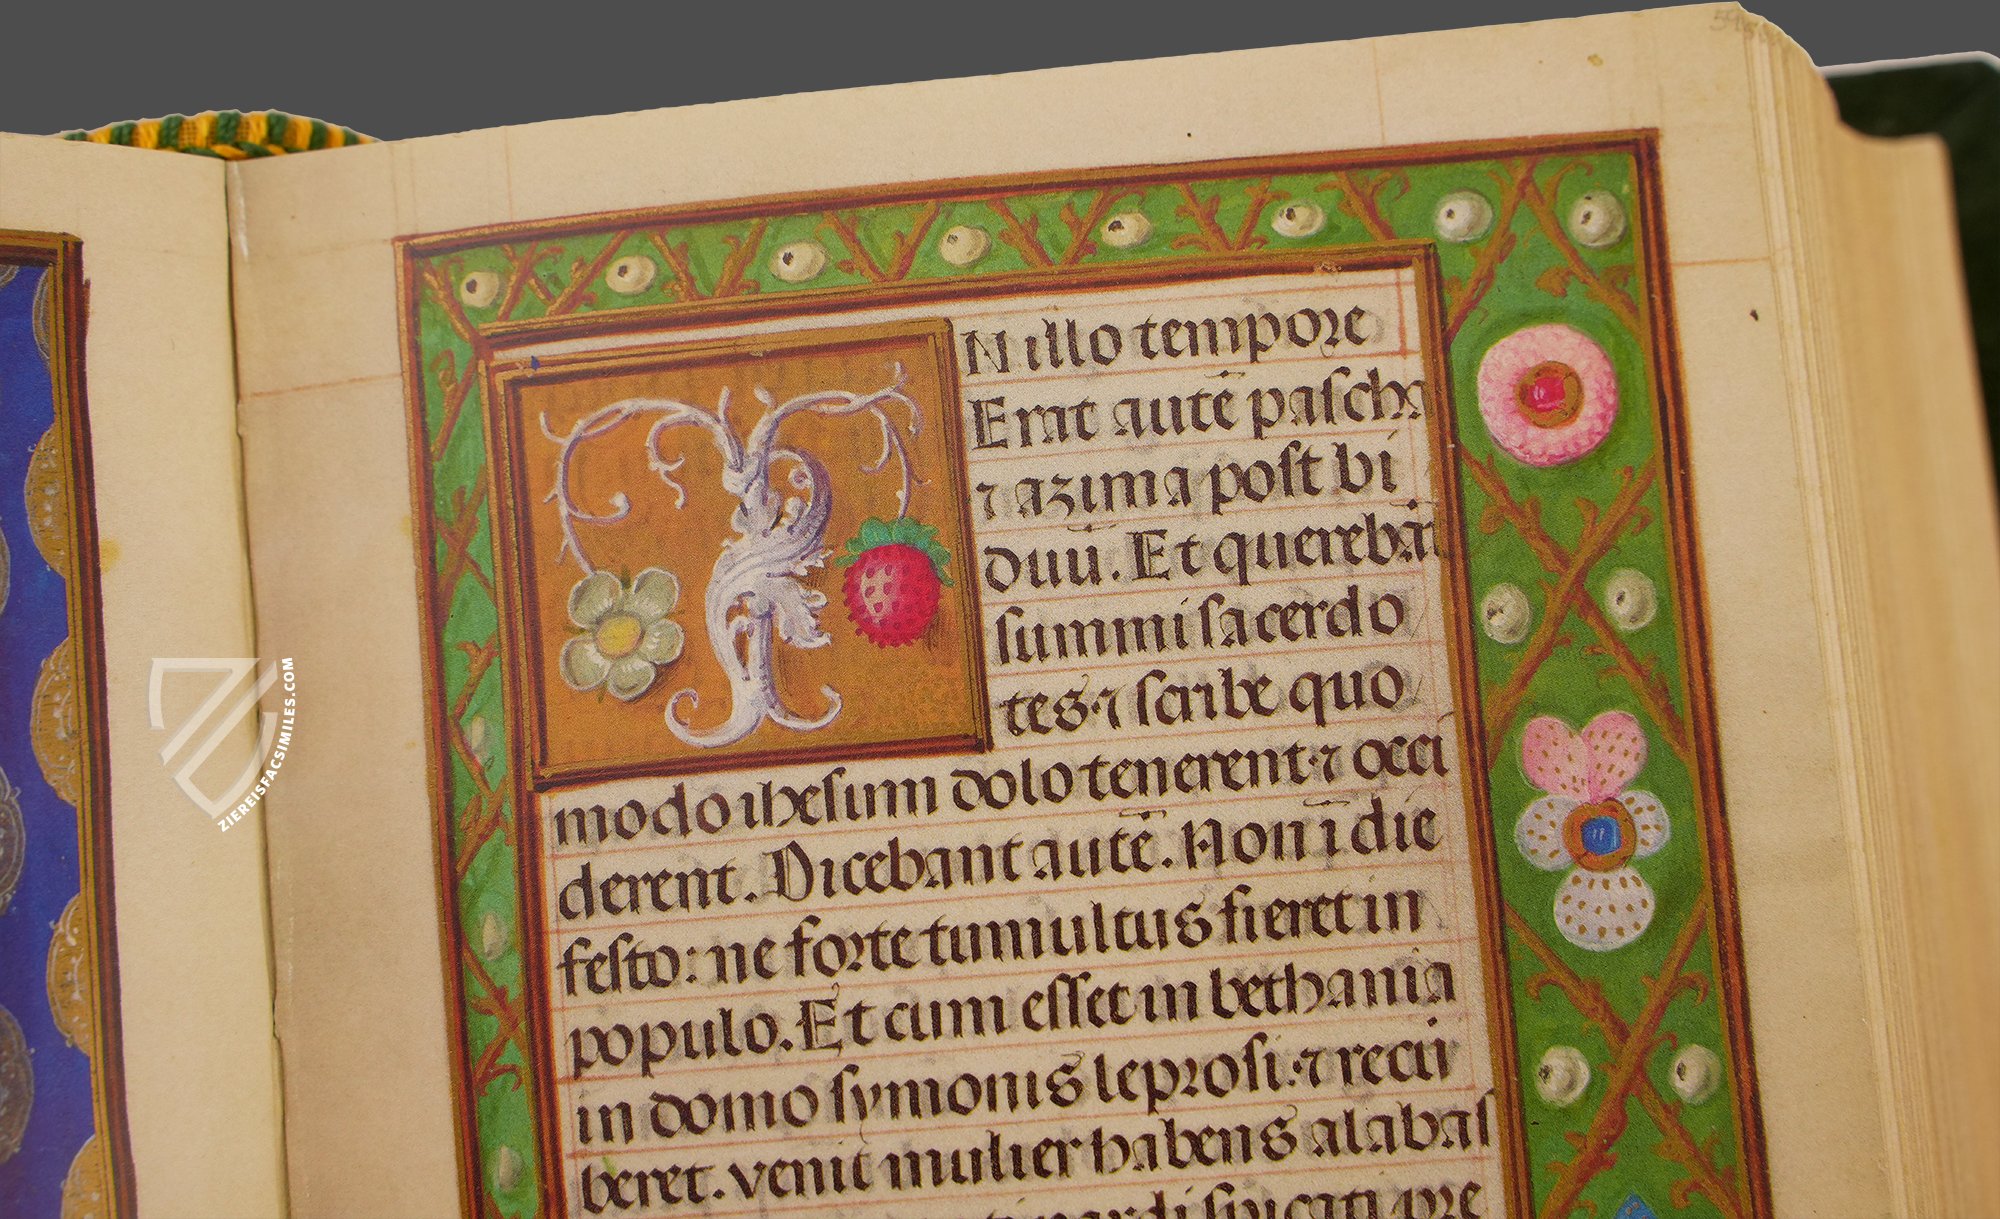 59
IN illo tempore
Erat autē pascha
⁊ azima post bi
duū. Et querebāt
summi sacerdo
tes ⁊ scribe quo
modo ihesum dolo tenerent ⁊ occi
derent. Dicebant autē. Non ī die
festo: ne forte tumultus fieret in
populo. Et cum esset in bethania
in domo symonis leprosi: ⁊ recū
beret. venit mulier habens alabas
nardi spicati pre
ZIEREISFACSIMILES.COM